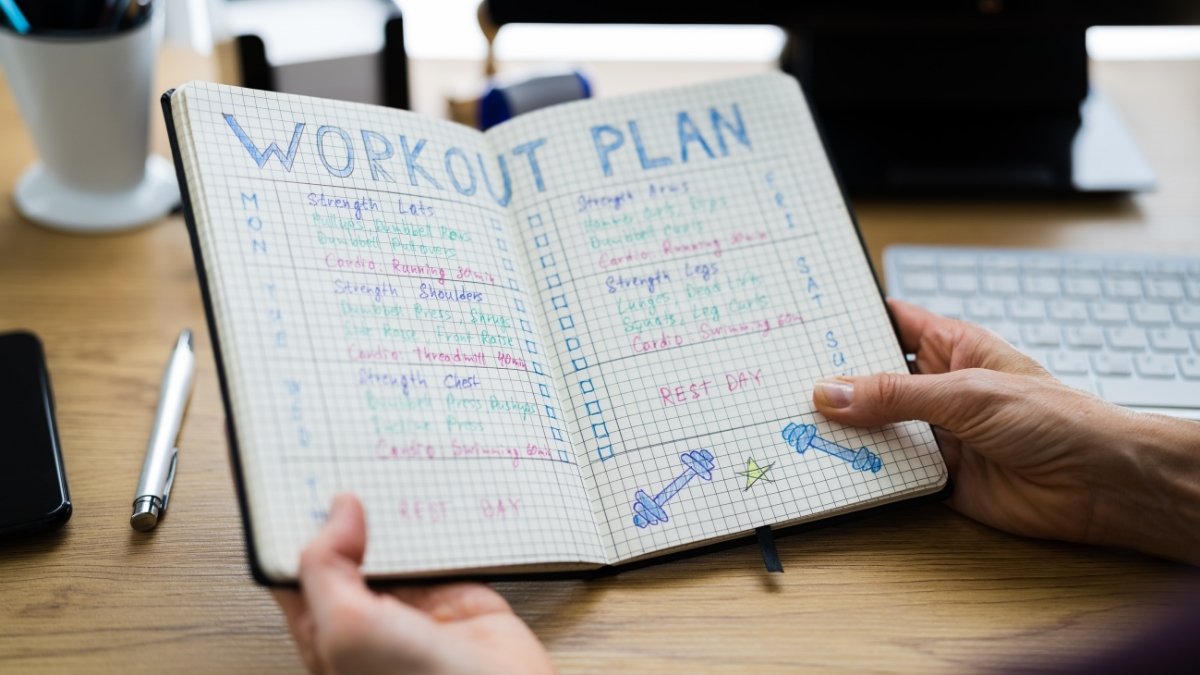 WORKOUT PLAN
MON
Strength Lats
Pullups Dumbbel Rows
Dumbbell Pullovers
Cardio: Running 30min
TUE
Strength Shoulders
Dumbbell Press, Shrugs
Side Raise Front Raise
Cardio: threadmill 40min
WED
Strength Chest
Dumbbell Press Pushups
Incline Press
Cardio: Swimming 60min
REST DAY
FRI
Strength Arms
Dumbell Curls
Cardio: Running 30min
SAT
Strength Legs
Lunges, Dead lifts
Squats, Leg Curls
Cardio: Swimming 60m
SU
REST DAY